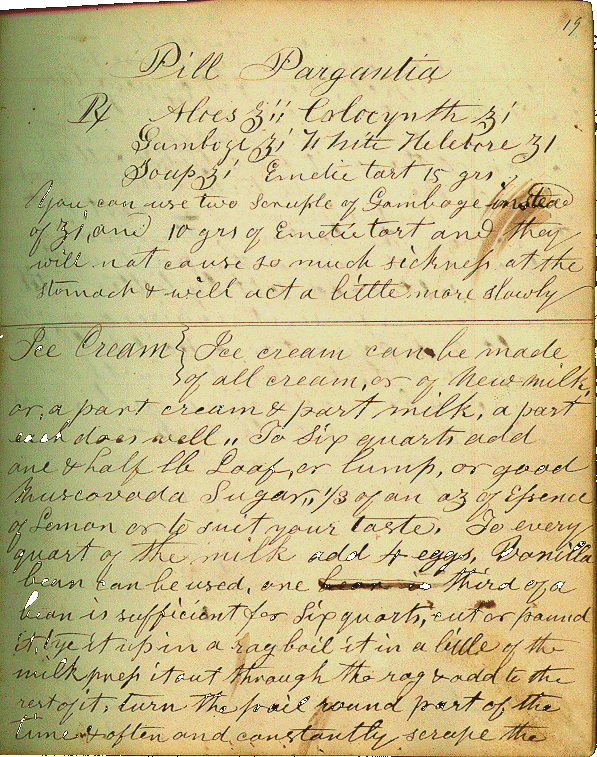 19
Pill Pargantia
℞ Aloes ʒii Colocynth ʒi
Gamboge ʒi White Helebore ʒi
Soap ʒi Emetic tart 15 grs
You can use two scruple of Gamboge instead
of ʒi, and 10 grs of Emetic tart and they
will not cause so much sickness at the
stomach & will act a little more slowly
Ice Cream } Ice cream can be made
of all cream, or of New milk,
or, a part cream & part milk, a part
each does well,, To Six quarts add
one & half lb Loaf, or lump, or good
Muscovada Sugar,, 1/3 of an oz of Essence
of Lemon or to suit your taste. To every
quart of the milk add 4 eggs. Vanilla
bean can be used, one third of a
bean is sufficient for Six quarts, cut or pound
it, tye it up in a rag boil it in a little of the
milk press it out through the rag & add to the
rest of it, turn the pail round part of the
time & often and constantly scrape the